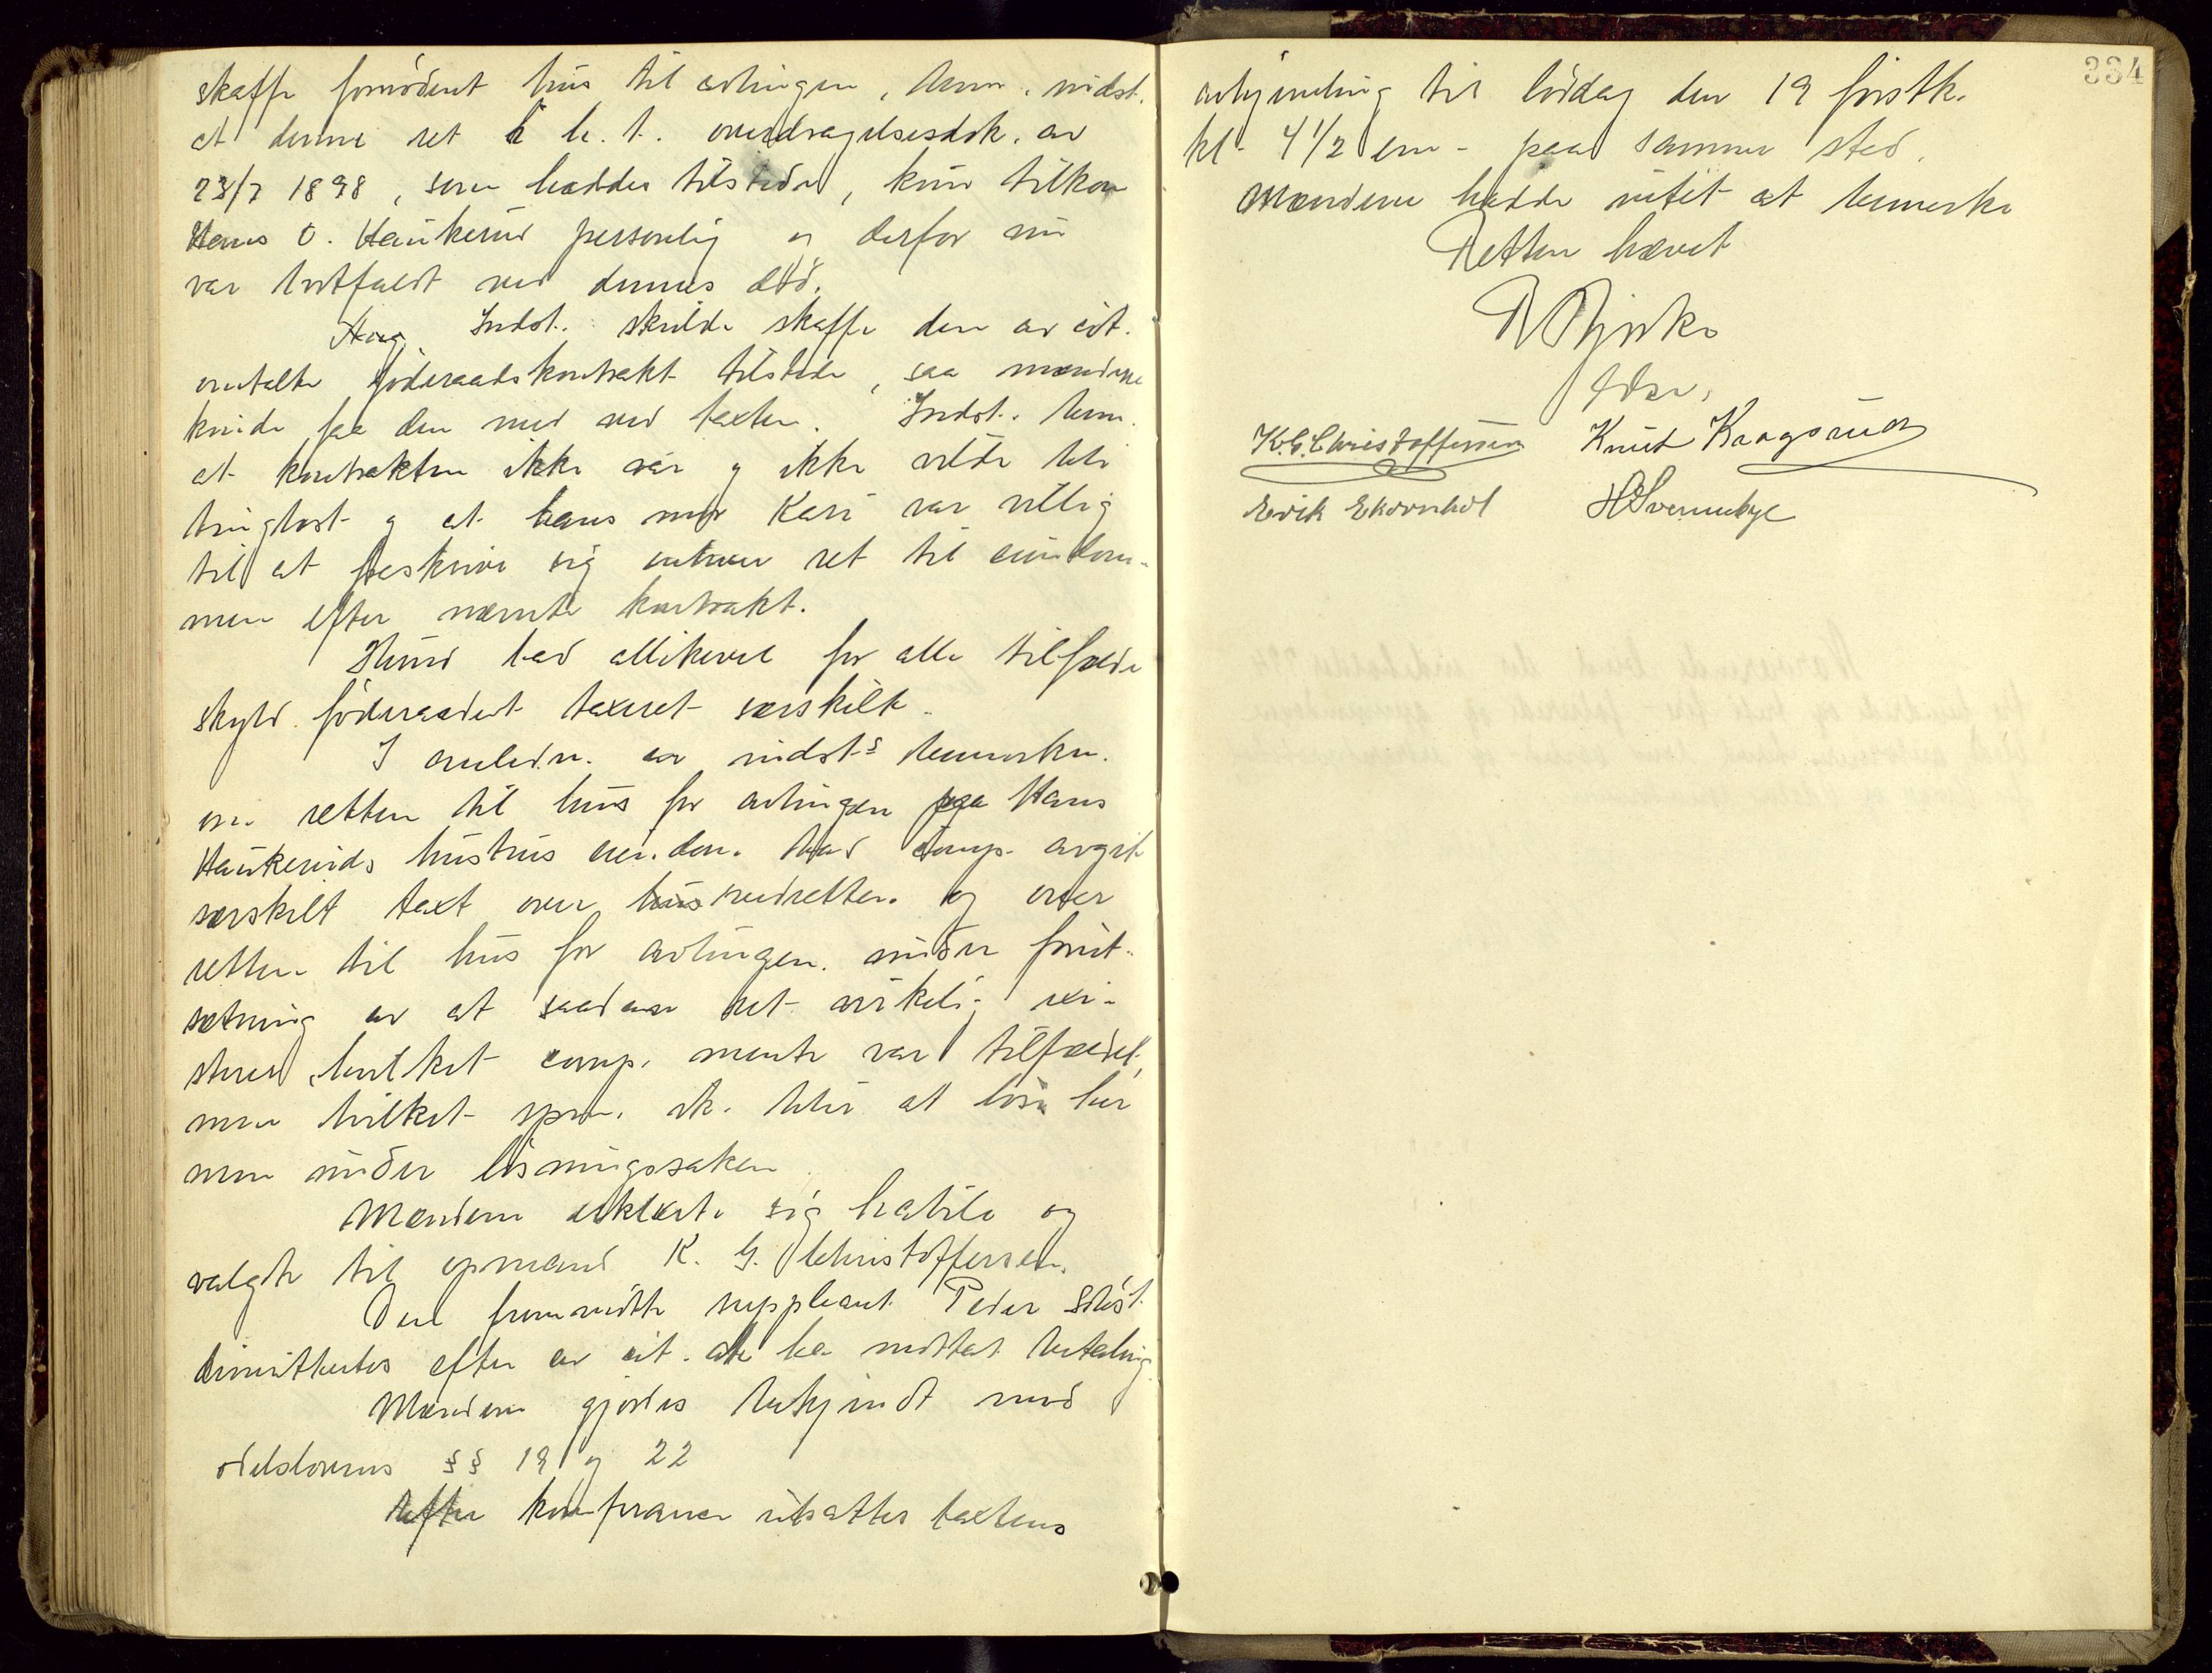 skaffe fornødent hus til avlingen, bem. indst.
at denne ret i h. t. overdragelsesdok. av
23/7 1898, som haddes tilstede, kun tilkom
Hans O. Haukerud personlig og derfor nu
var bortfaldt ved dennes død.
Indst. skulde skaffe den av cit.
omtalte føderaadskontrakt tilstede, saa mændene
kunde faa den med ved taxten. Indst. bem.
at kontrakten ikke var og ikke vilde bli
tinglæst og at hans mor Kari var villig
til at fraskrive sig enhver ret til eiendom-
men efter nævnte kontrakt.
Hund bad allikevel for alle tilfælde
skyld føderaadet taxeret særskilt.
I anledn. av indst.s bemerkn.
om retten til hus for avlingen paa Hans
Haukeruds hustrus eiendom bad comp. avgit
særskilt taxt over husundretten og over
retten til hus for avlingen under forut-
sætning av at saadan ret virkelig exi-
sterer, hvilket comp. mente var tilfældet,
men hvilket spm. sk. blir at løse her
men under løsningssaken
Mændene erklærte sig habile og
valgte til opmand K. G. Christoffersen.
Den fremmøtte suppleant Peder
dimitteredes efter av cit. at ha mottat betaling
Mændene gjordes bekjendt med
odelslovens §§ 19 og 22
Efter konferance utsattes taxtens
334
avhjemling til lørdag den 19 førstk.
kl. 4 1/2 em. paa samme sted.
Mændene hadde intet at bemerke
Retten hævet
K. G. Christoffersen Knut Kragsrud
Erik Ekornhol H Svennebye